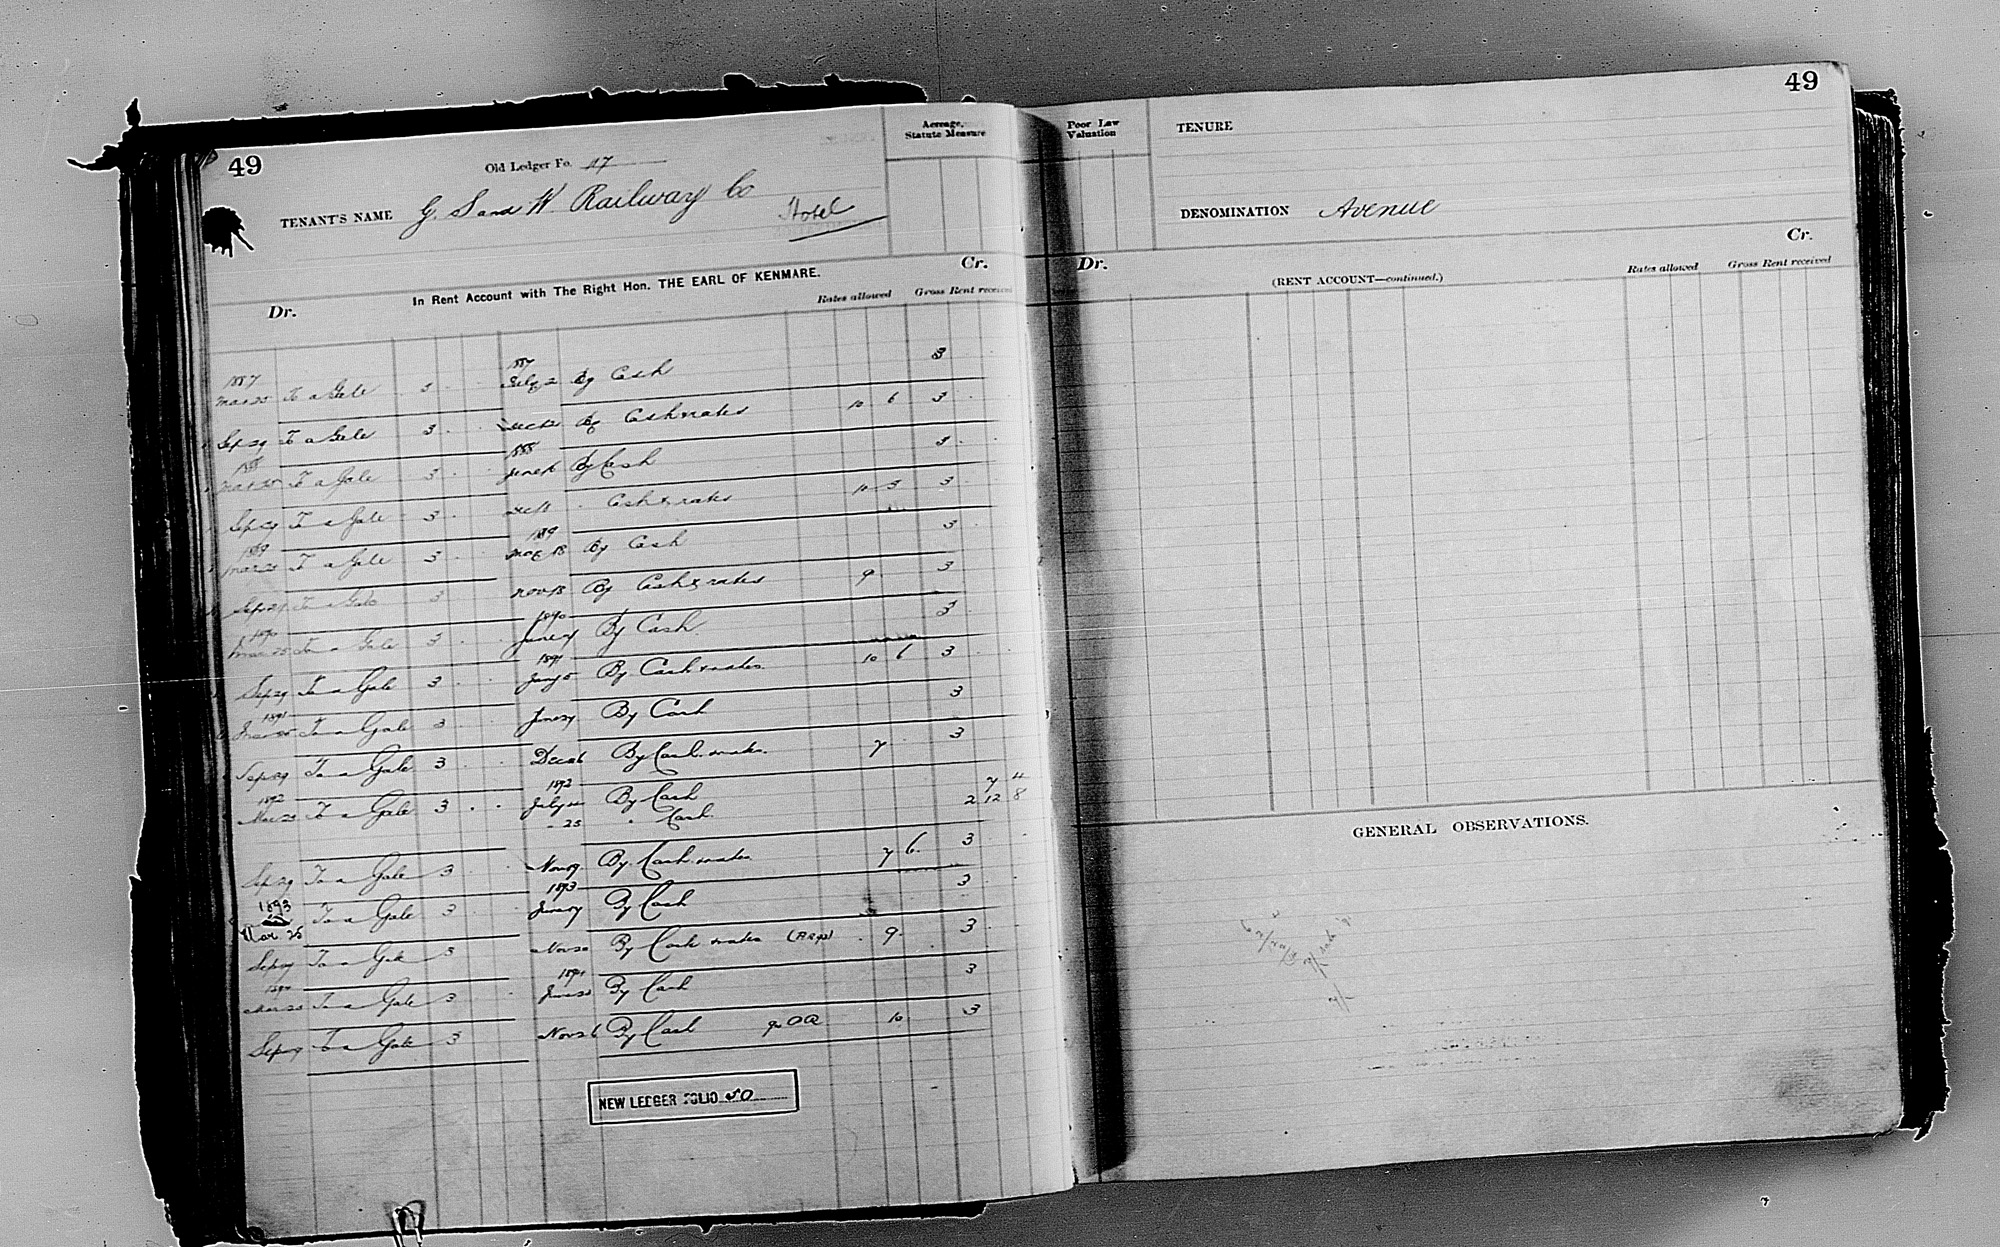 49
Old Ledger Fo. 47
Acreage, Statute Measure
TENANT'S NAME G. S and W. Railway Co
Hotel
In Rent Account with The Right Hon. THE EARL OF KENMARE.
Dr. Cr.
Rates allowed Gross Rent received
1887 1887
Mar 25 To a Gale 3 July 2 By Cash 3
Sep 29 To a Gale 3 By Cash & rates 10 6 3
1888 1888
Mar 25 To a Gale 3 June By Cash 3
Sep 29 To a Gale 3 Dec 11 Cash & rates 10 3 3
1889 1889
Mar 25 To a Gale 3 May 13 By Cash 3
Sep 29 To a Gale 3 Nov 13 By Cash & rates 9 3
1890 1890
Mar 25 To a Gale 3 June By Cash 3
1891
Sep 29 To a Gale 3 Jany 5 By Cash & rates 10 6 3
1891
Mar 25 To a Gale 3 June 27 By Cash 3
Sep 29 To a Gale 3 Dec By Cash & rates 7 3
1892 1892
Mar 25 To a Gale 3 July 11 By Cash 7 4
" 25 " Cash 2 12 8
Sep 29 To a Gale 3 Nov 9 By Cash & rates 7 6 3
1893 1893
Mar 25 To a Gale 3 June 27 By Cash 3
Sep 29 To a Gale 3 Nov 20 By Cash & rates 9 3
1894 1894
Mar 25 To a Gale 3 June By Cash 3
Sep 29 To a Gale 3 Nov 26 By Cash 10 3
NEW LEDGER FOLIO 50
49
Poor Law Valuation
TENURE
DENOMINATION Avenue
Dr. Cr.
(RENT ACCOUNT—continued.)
Rates allowed Gross Rent received
GENERAL OBSERVATIONS.